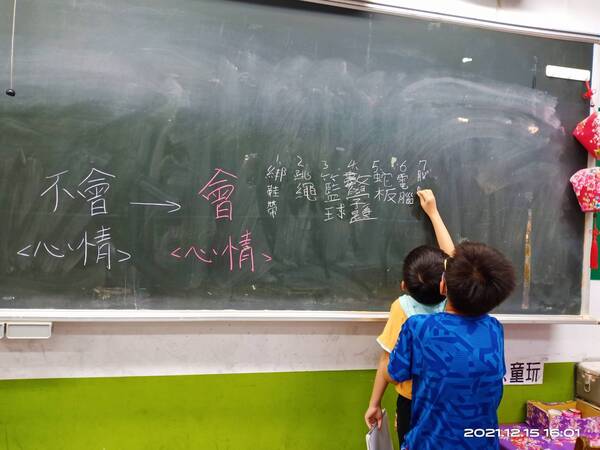 不會 → 會
<心情> <心情>
1.綁鞋帶
2.跳繩
3.籃球
4.數學
5.蛇板
6.電腦
7.
童玩
2021.12.15 16:01